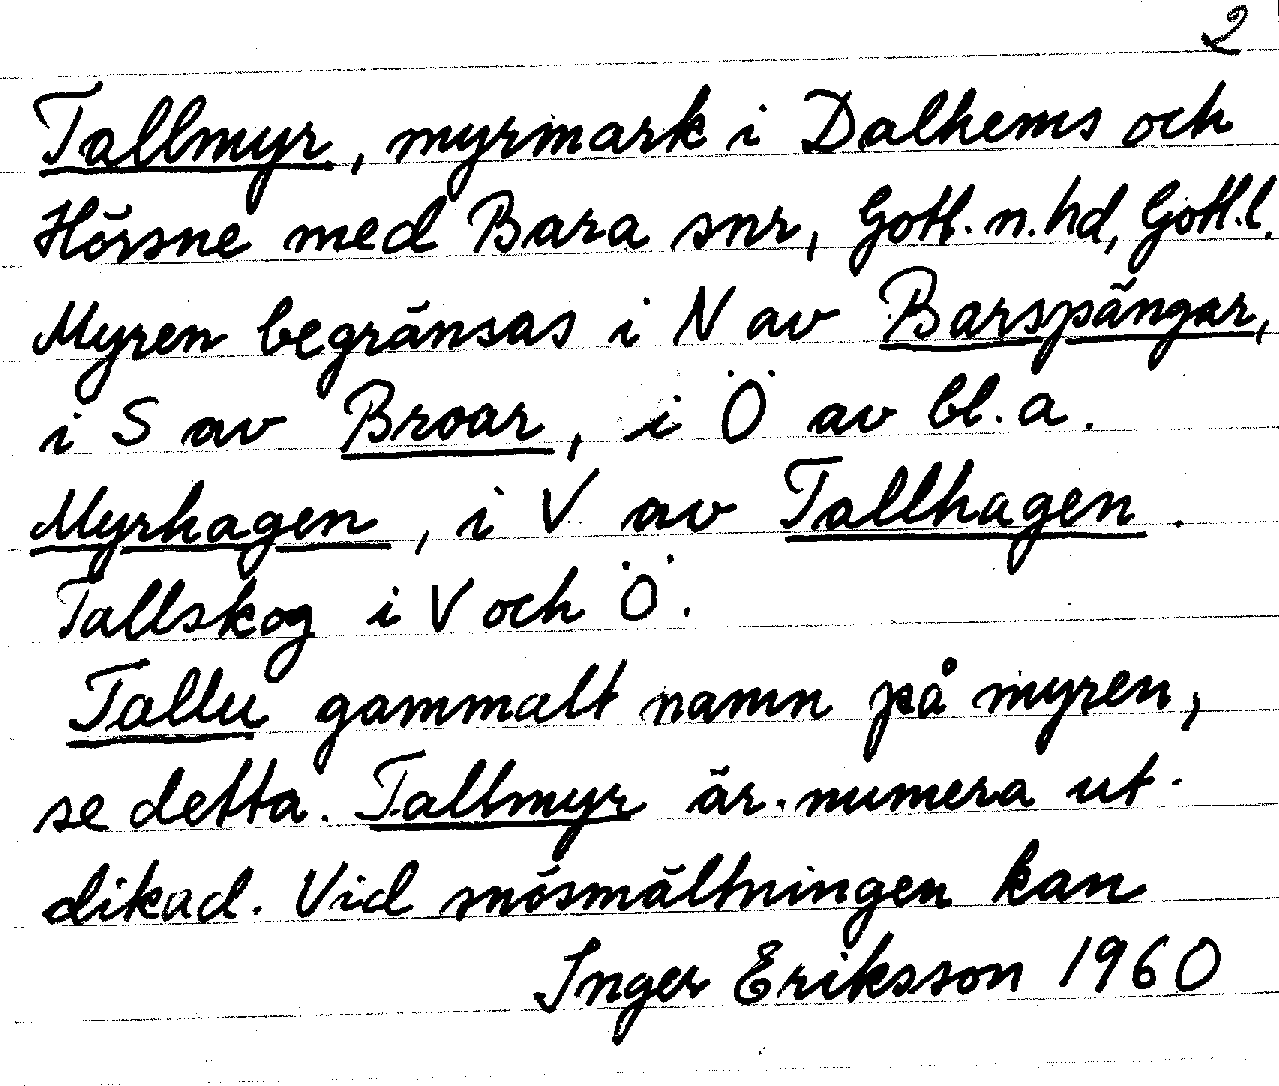 2
Tallmyr, myrmark i Dalhems och
Hörsne med Bara snr, Gotl. n. hd, Gotl. l.
Myren begränsas i N av Barspängar,
i S av Broar, i Ö av bl. a.
Myrhagen, i V av Tallhagen.
Tallskog i V och Ö.
Tallu gammalt namn på myren,
se detta. Tallmyr är numera ut-
dikad. Vid snösmältningen kan
Inger Eriksson 1960